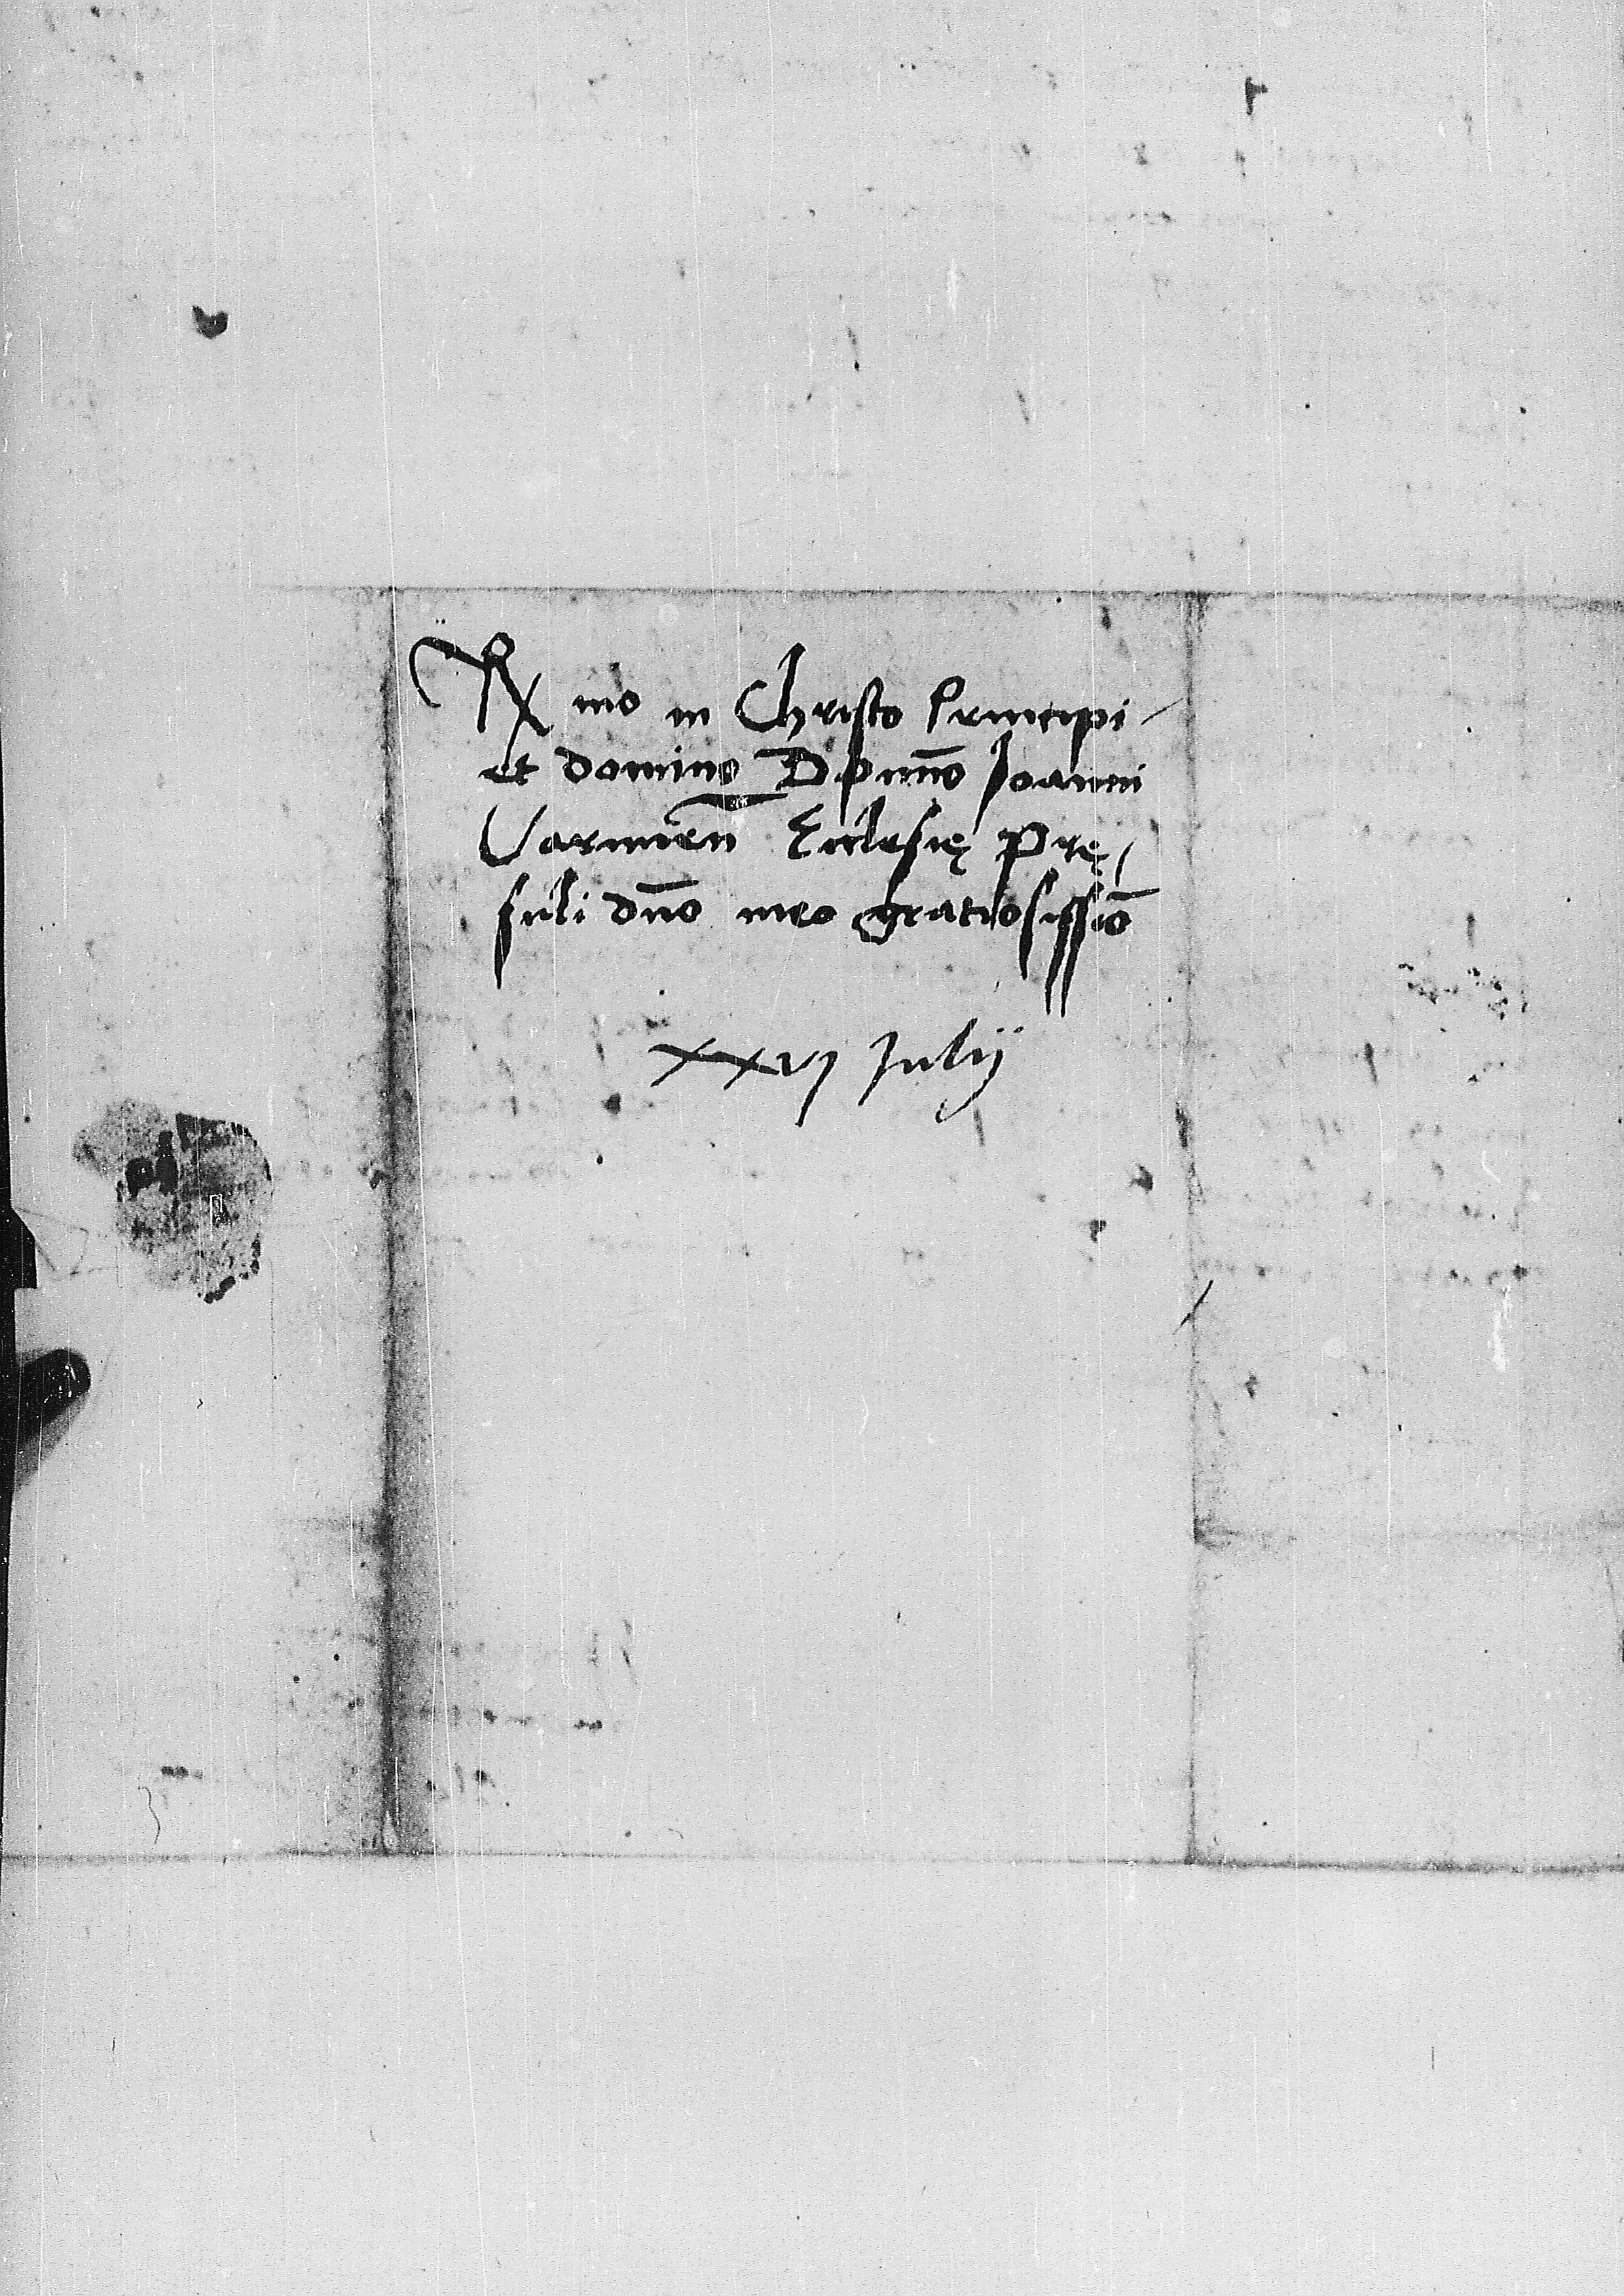 Rx mo in Christo Principi
et domino Domino Joanni
Varmien̄ Ecclesię Prę/
suli dn̄o meo gratiosissīo
xxvj Julij